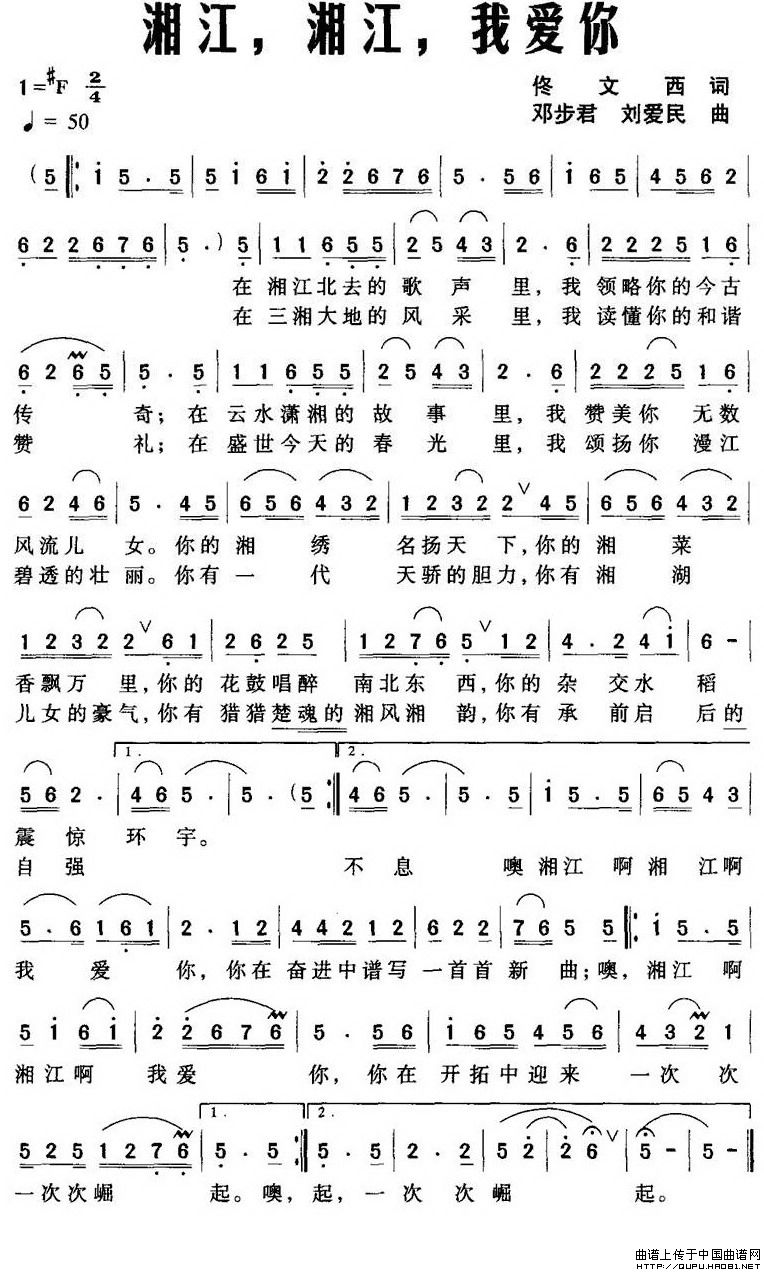 湘江，湘江，我爱你
1=#F 2/4 佟文西 词
♩=50 邓步君 刘爱民 曲
(5 ‖: i 5·5 | 5 i 6 i | 2 2676 | 5· 56 | i 65 | 4562 |
62 2676 | 5·) 5 | 11655 | 25 43 | 2·6 | 222516 |
在 湘江北去的 歌声里，我 领略你的今古
在 三湘大地的 风采里，我 读懂你的和谐
6265 | 5·5 | 11655 | 2543 | 2·6 | 222516 |
传奇；在 云水潇湘的 故事里，我 赞美你 无数
赞礼；在 盛世今天的 春光里，我 颂扬你 漫江
6246 | 5·45 | 656432 | 1232 | 2∨45 | 656432 |
风流儿女。你的 湘绣 名扬天下，你的 湘菜
碧透的壮丽。你有 一代 天骄的胆力，你有 湘湖
1232 2∨61 | 2625 | 1276 5∨12 | 4·24i | 6- |
香飘万里，你的 花鼓唱醉 南北东西，你的 杂交水稻
儿女的豪气，你有 猎猎楚魂的 湘风湘韵，你有 承前启后的
1. 2.
562· | 465· | 5·(5 :‖ 465· | 5·5 | i 5·5 | 6543 |
震惊环宇。
自强 不息 噢湘江啊湘江啊
5·6161 | 2·12 | 44212 | 622 | 7655 ‖: i 5·5 |
我爱你，你在 奋进中谱写 一首首新曲；噢，湘江啊
5 i 6 i | 2 2676 | 5·56 | i 65456 | 4321 |
湘江啊 我爱你，你在 开拓中迎来 一次次
1. 2.
525 1276 | 5·5 :‖ 5·5 | 2·2 | 52 26∨ | 5- | 5- ‖
一次次崛起。噢，起，一次次崛起。
曲谱上传于中国曲谱网
HTTP://QUPU.HAO81.NET